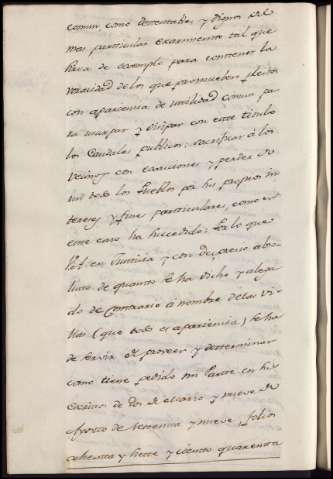 comun como detestables y dignos del
mas particular escarmiento tal que
sirva de exemplo para contener la
voracidad de los que promueben pleitos
con apariencia de utilidad comun pa-
ra usurpar y disipar con este titulo
los Caudales publicos: sacrificar á los
vecinos con exacciones y perder
todos los Pueblos por sus propios in-
tereses y fines particulares, como en
este caso ha succedido: Por lo que
en Justicia y con desprecio abso-
luto de quanto se ha dicho y alega-
do de contrario á nombre de las Vi-
llas (que todo es apariencia) se ha
de servir de proveer y determinar
como tiene pedido mi Parte en sus
Escritos de dos de enero y nueve de
Agosto de setenta y nueve folios
ochenta y siete y ciento quarenta